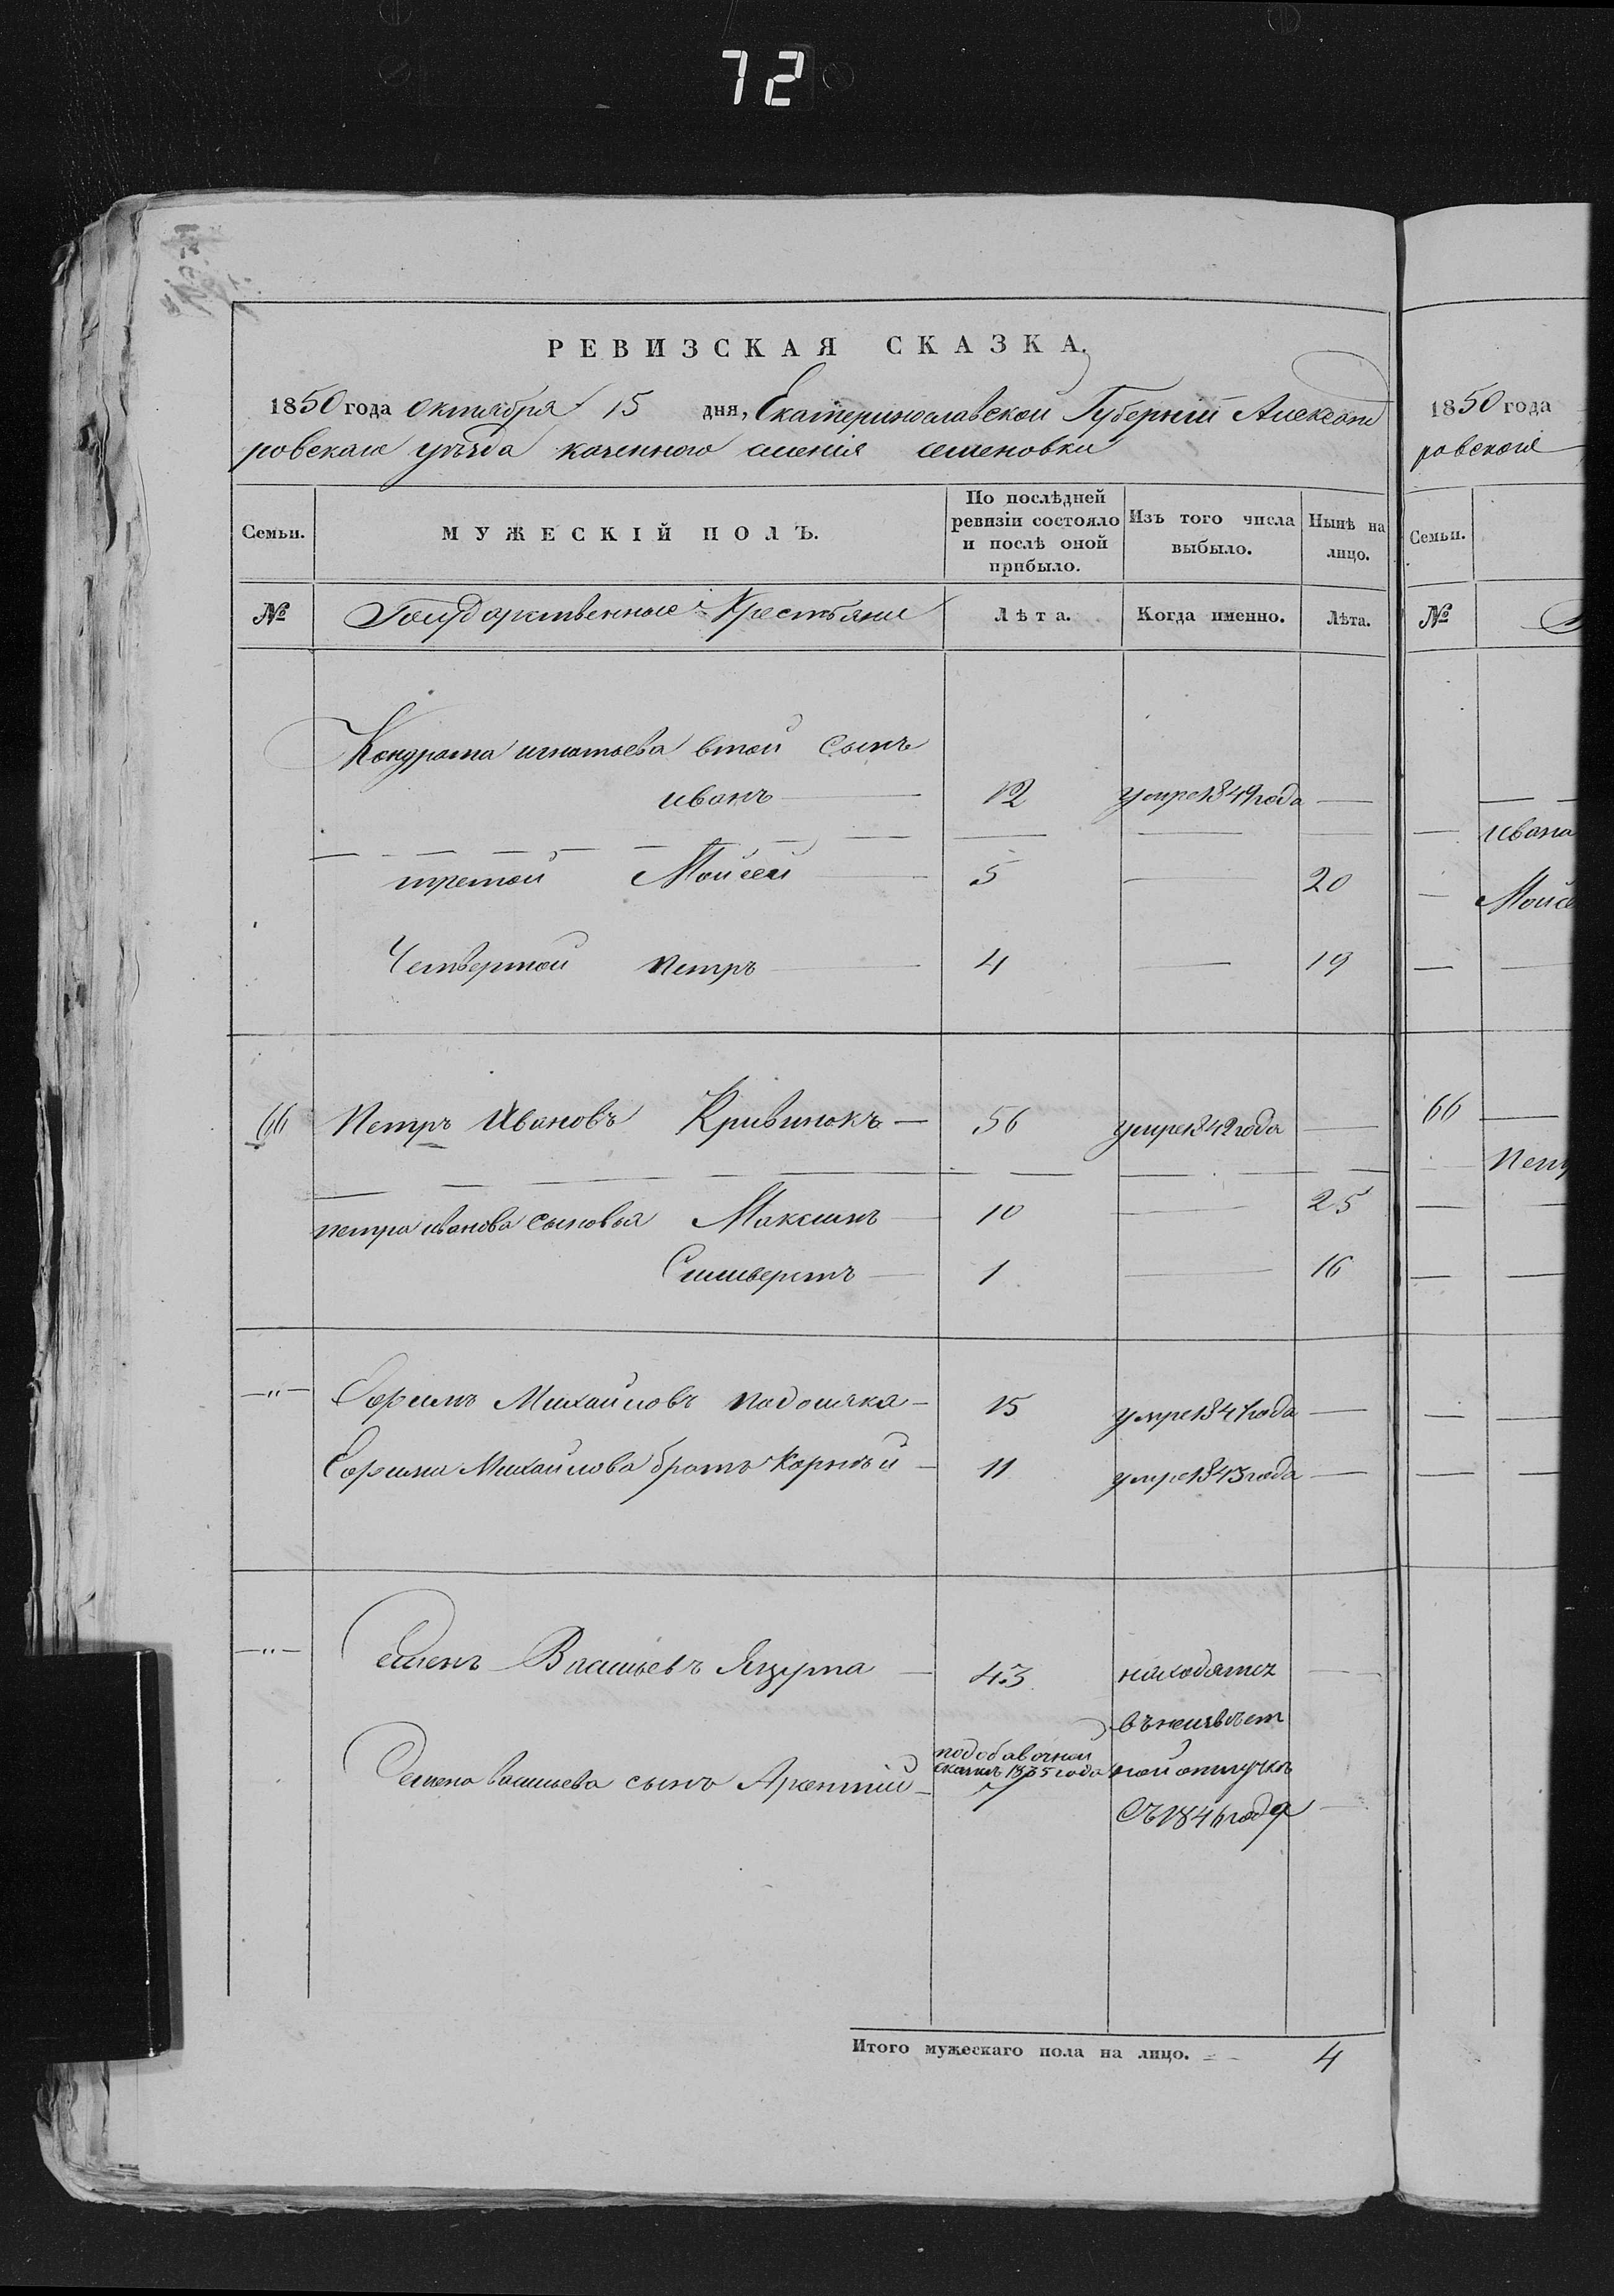 72
РЕВИЗСКАЯ СКАЗКА.
1850 года октября 15 дня, Екатеринославской Губерній Александ
ровскаго уѣзда казенного имения семеновки
Семьи. МУЖЕСКІЙ ПОЛЪ. По послѣдней ревизіи состояло и послѣ оной прибыло. Изъ того числа выбыло. Нынѣ на лицо.
№ Государственные Крестьяни Лѣта. Когда именно. Лѣта.
Кондрата игнатьева втой сынъ
иванъ 12 умре 1849 года —
третой Мойсей 5 — 20
Четвертой петръ 4 — 19
66 Петръ Ивановъ Кривинокъ 56 умре 1842 года —
петра иванова сыновья Максимъ 10 — 25
Сильверстъ 1 — 16
—"— Михайловъ 15 умре 1841 года —
Михайлова братъ Корнѣй 11 умре 1843 года —
—"— Семенъ Васильевъ 43 находятся —
въ неизвѣст
Семена васильева сынъ подобавочной
сказкѣ 1835 года ной отлучкѣ
7 Съ 1846 года —
Итого мужескаго пола на лицо. 4
1850 года
ровского
Семьи.
№
ивана
Мойсе
66
Петр